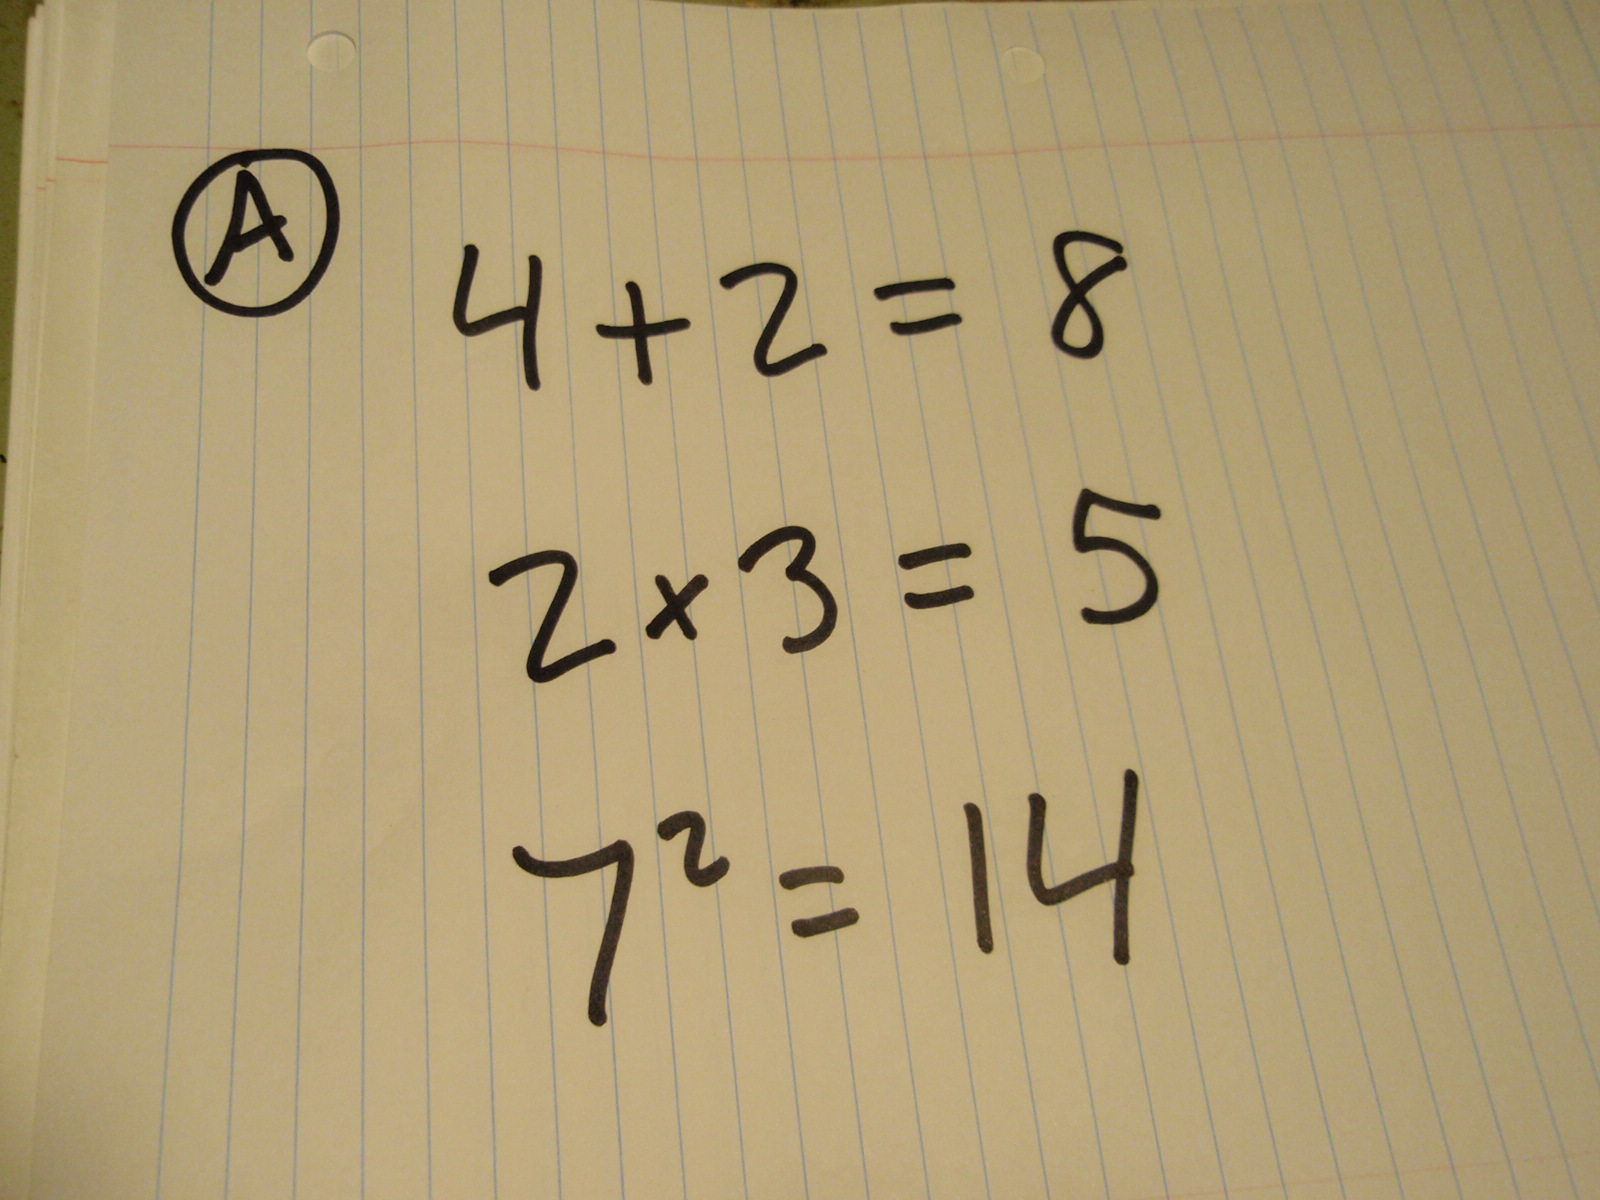 A 4 + 2 = 8
2 × 3 = 5
7² = 14